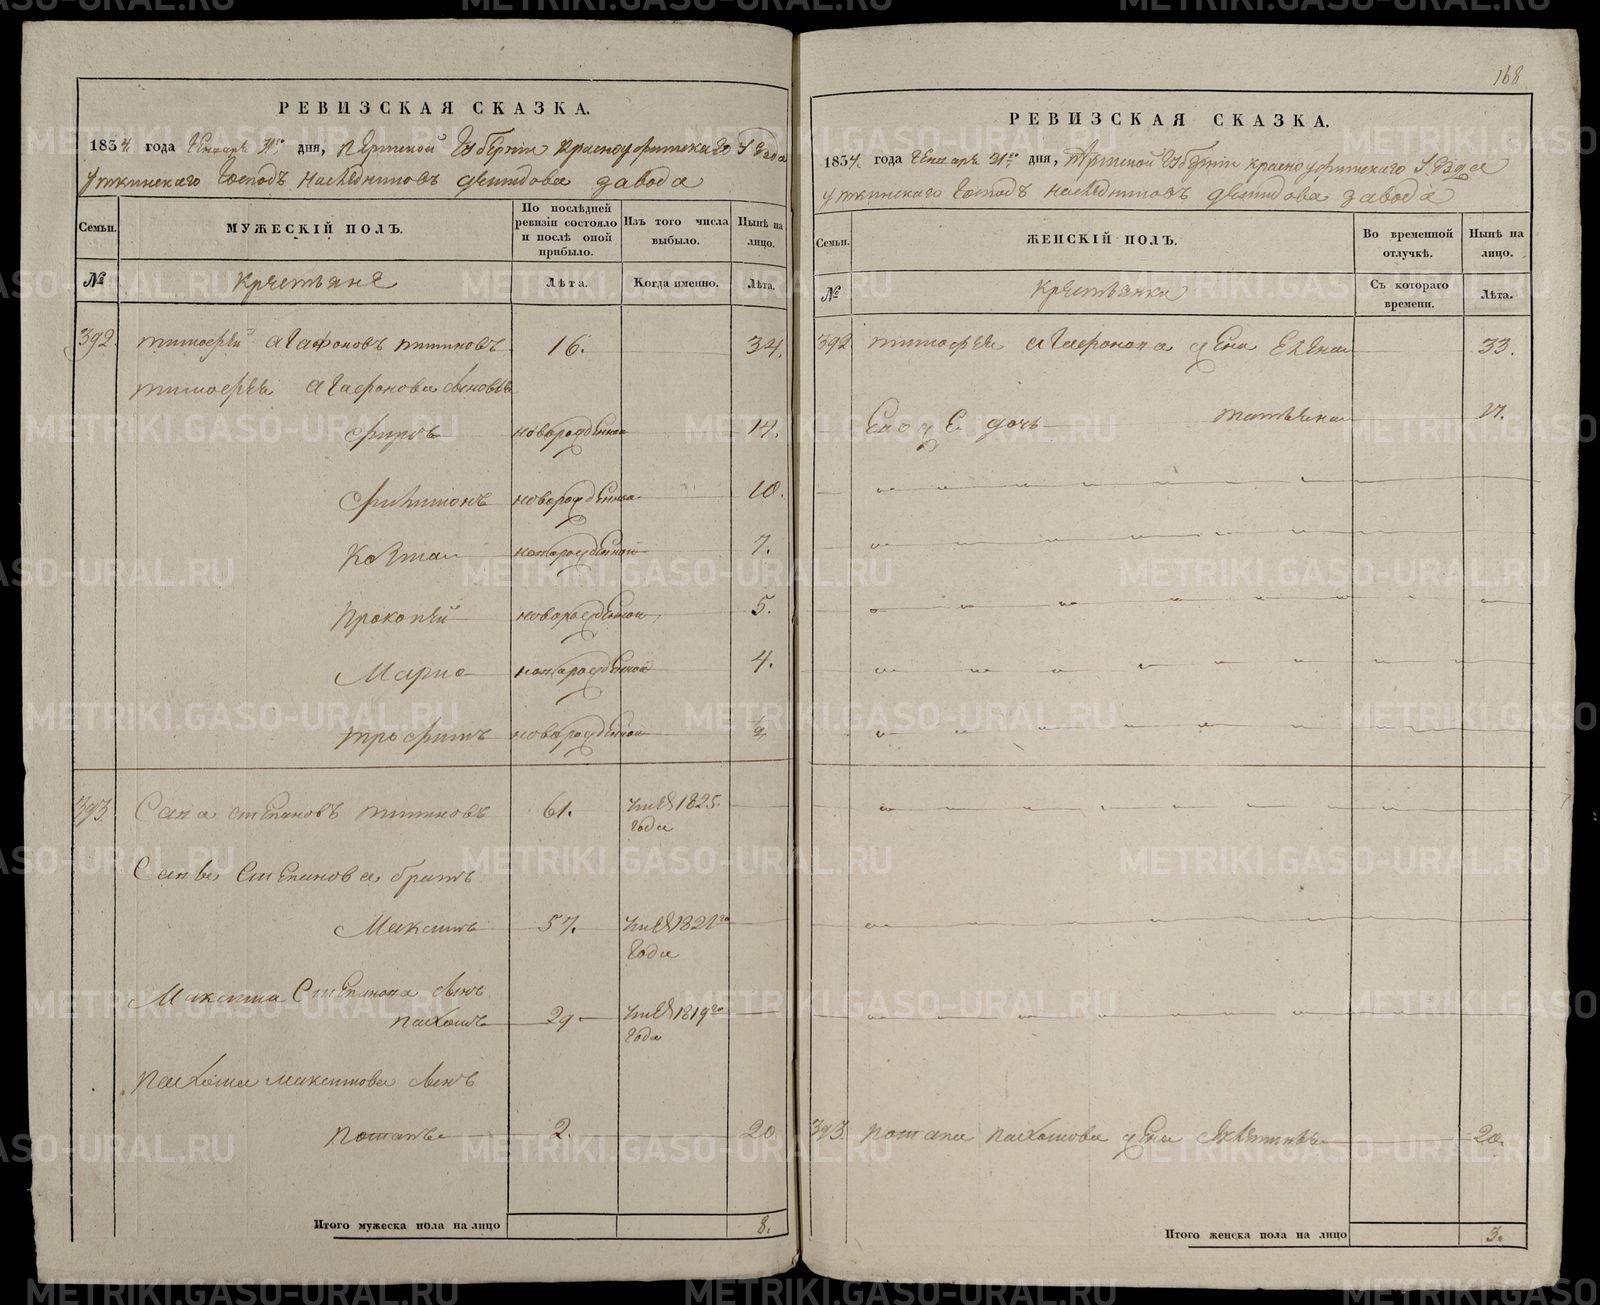 РЕВИЗСКАЯ СКАЗКА.
1834 года Генваря 31го дня, Пермской Губернии Красноуфимскаго Уезда
Уткинскаго Господъ Наследниковъ Демидова завода
Семьи.
МУЖЕСКІЙ ПОЛЪ.
По послѣдней ревизіи состояло и послѣ оной прибыло.
Изъ того числа выбыло.
Нынѣ на лицо.
№
Крестьяне
Лѣта.
Когда именно.
Лѣта.
392. Тимофей Агафоновъ Титиковъ 16. 34.
Тимофея Агафонова сыновья
новорожденной 14.
Филимонъ новорожденной 10.
Козма новорожденной 7.
Прокопей новорожденной 5.
Марко новорожденной 4.
Трофимъ новорожденной 1/2
393. Сава Степановъ 61. 1825. года
Савы Степанова братъ
Максимъ 57. 1821го года
Максима Степанова сынъ
Пахомъ 29 1819го года
Пахома Максимова сынъ
Потапъ 2. 20
Итого мужеска пола на лицо 8.
168
РЕВИЗСКАЯ СКАЗКА.
1834 года Генваря 31го дня, Пермской Губернии Красноуфимскаго Уезда
Уткинскаго Господъ Наследниковъ Демидова завода
Семьи.
ЖЕНСКІЙ ПОЛЪ.
Во временной отлучкѣ.
Нынѣ на лицо.
№
Крестьянки
Съ котораго времени.
Лѣта.
392 Тимофея Агафонова жена Елена 33.
Ево же дочь Татьяна 17.
393. Потапа Пахомова жена 20.
Итого женска пола на лицо 3.
METRIKI.GASO-URAL.RU